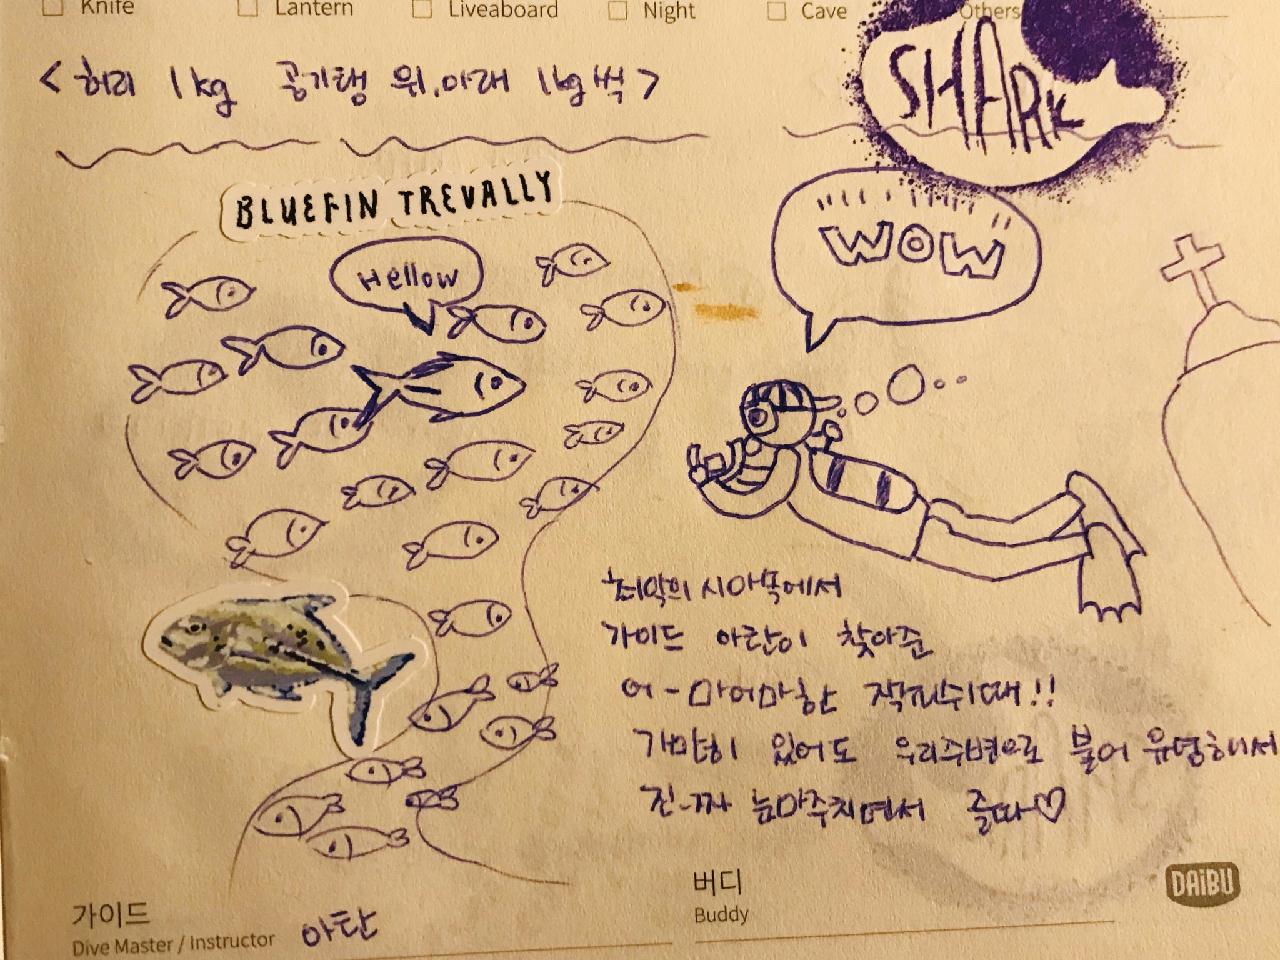 Knife
Lantern
Liveaboard
Night
Cave
Others
SHARK
< 허리 1kg 공기탱 위.아래 1kg씩 >
BLUEFIN TREVALLY
Hellow
WOW
최악의 시야속에서
가이드 아탄이 찾아준
어-마어마한 잭피쉬떼!!
가만히 있어도 우리주변으로 붙어 유영해서
진-짜 눈마주치면서 즐따♡
가이드
Dive Master / Instructor
아탄
버디
Buddy
DAIBU